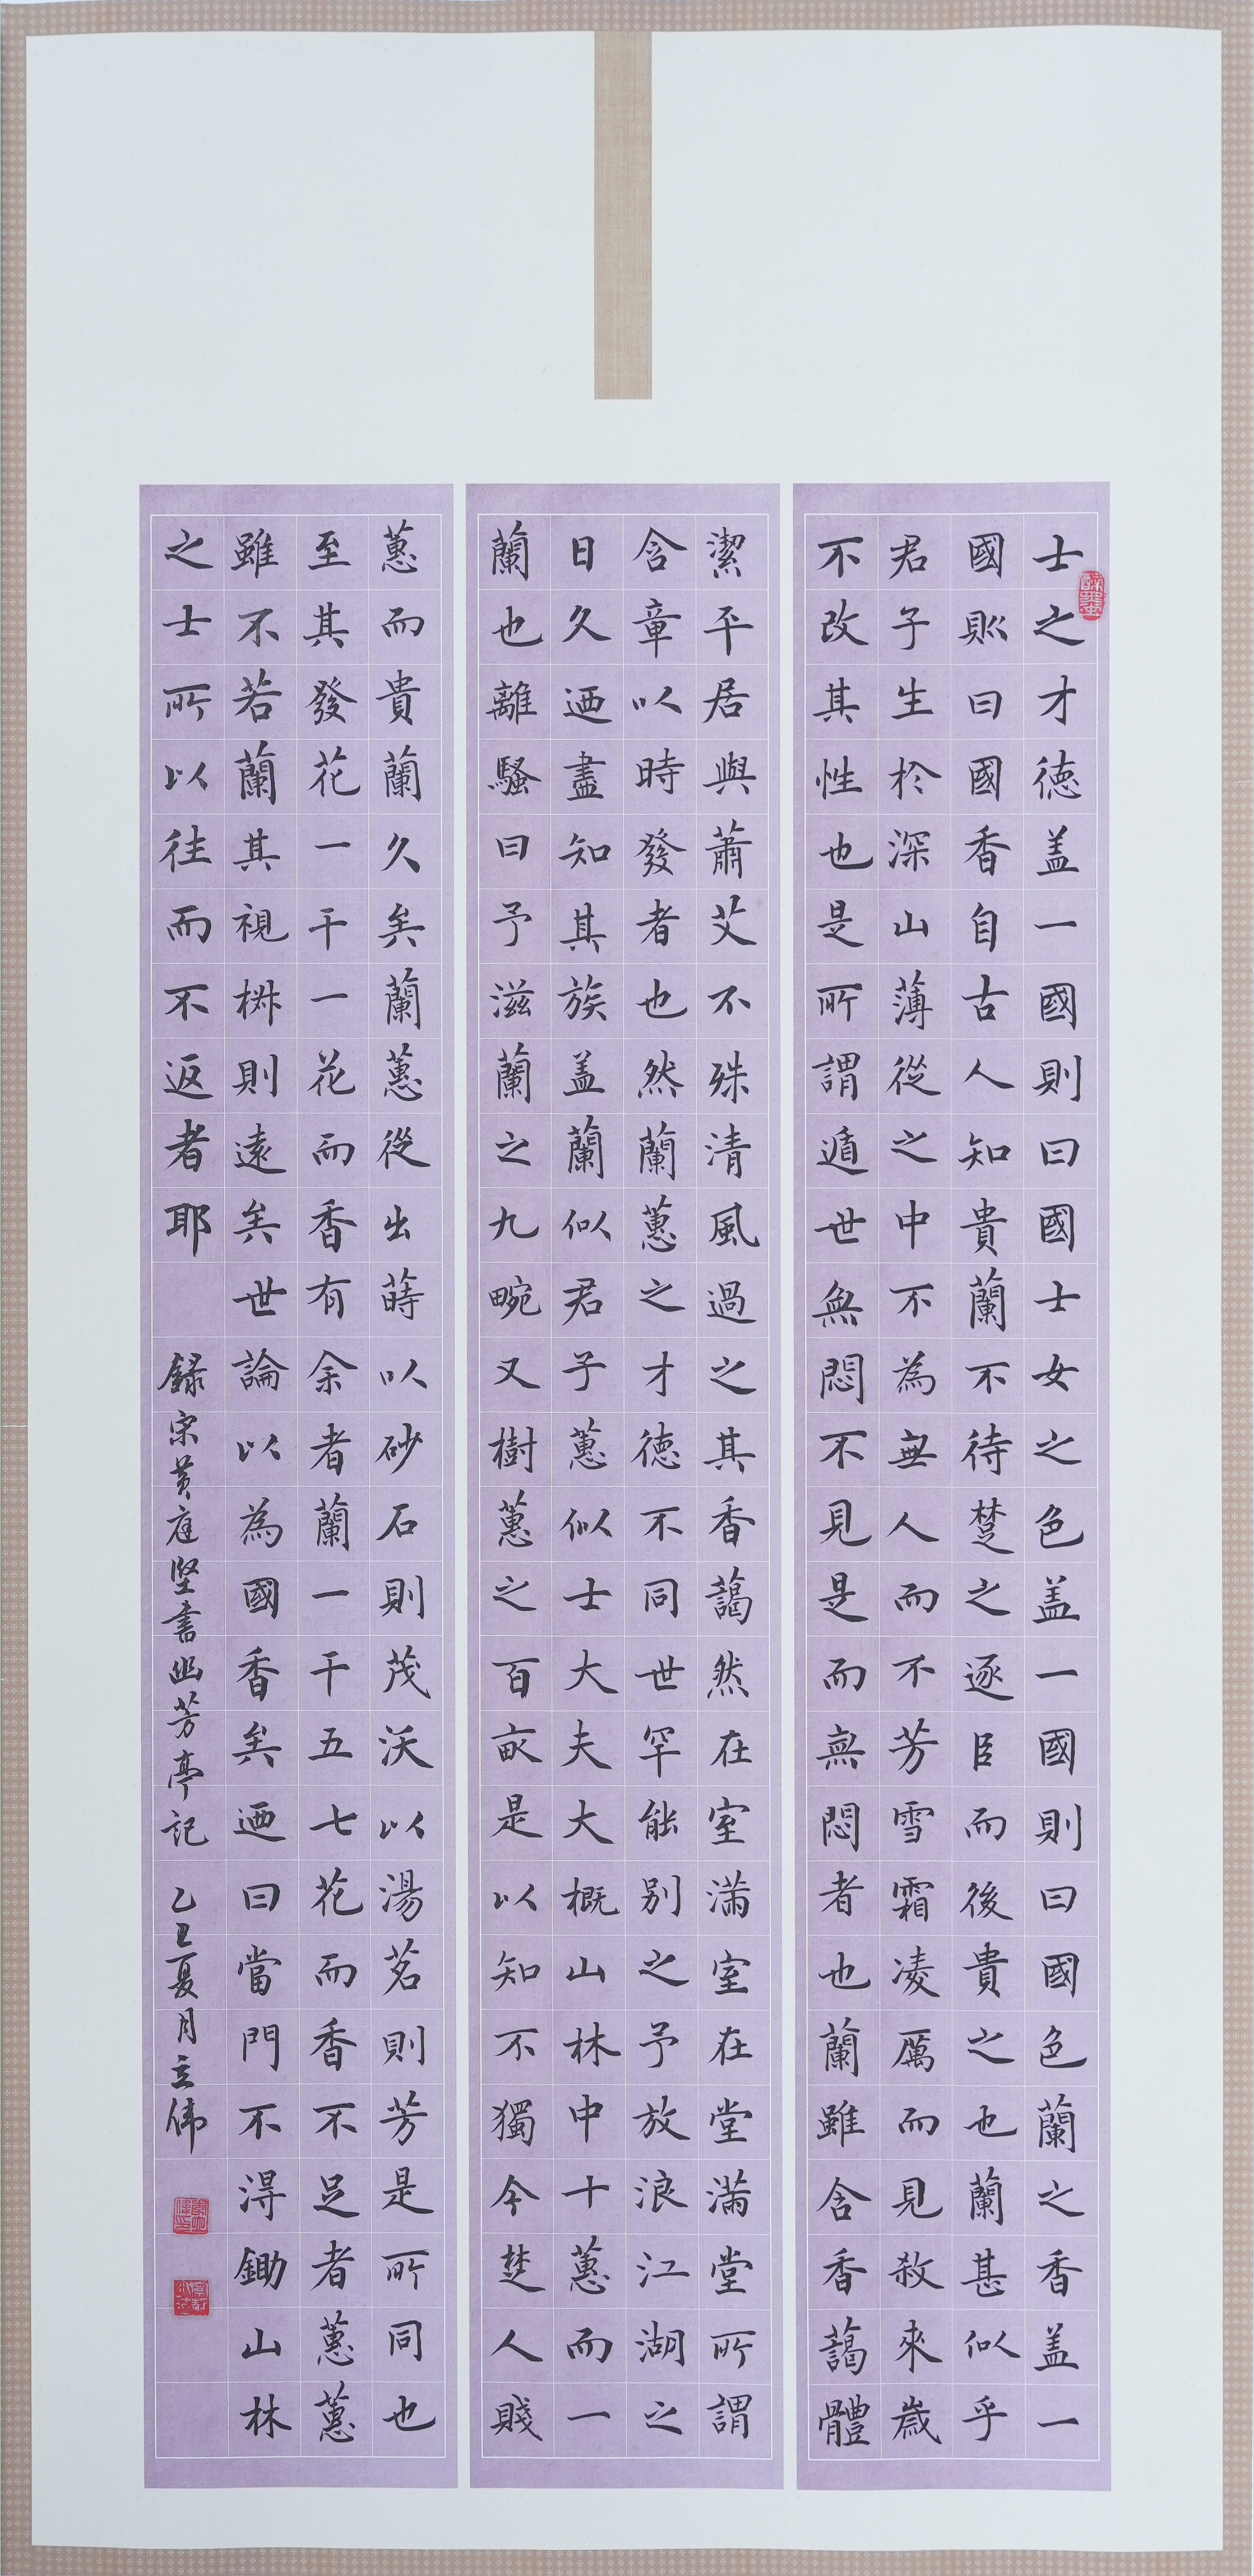 士之才德盖一國則曰國士女之色盖一國則曰國色蘭之香盖一
國則曰國香自古人知貴蘭不待楚之逐臣而後貴之也蘭甚似乎
君子生於深山薄從之中不為無人而不芳雪霜凌厲而見殺來歲
不改其性也是所謂遁世無悶不見是而無悶者也蘭雖含香藹體
潔平居與蕭艾不殊清風過之其香藹然在室滿室在堂滿堂所謂
含章以時發者也然蘭蕙之才德不同世罕能别之予放浪江湖之
日久迺盡知其族盖蘭似君子蕙似士大夫大概山林中十蕙而一
蘭也離騷曰予滋蘭之九畹又樹蕙之百畝是以知不獨今楚人賤
蕙而貴蘭久矣蘭蕙從出蒔以砂石則茂沃以湯茗則芳是所同也
至其發花一干一花而香有余者蘭一干五七花而香不足者蕙蕙
雖不若蘭其視椒則遠矣世論以為國香矣迺曰當門不淂鋤山林
之士所以往而不返者耶
録宋黄庭堅書幽芳亭記 乙巳夏月立偉